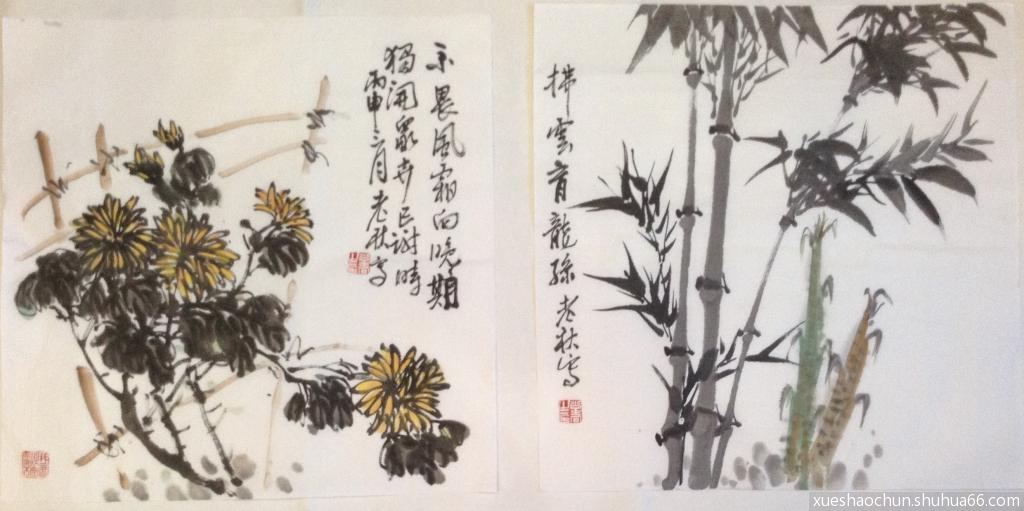 不畏風霜向晚期
獨開眾卉已谢時
丙申三月老秋写
拂雲育龍孫老秋写
xueshaochun.shuhua66.com